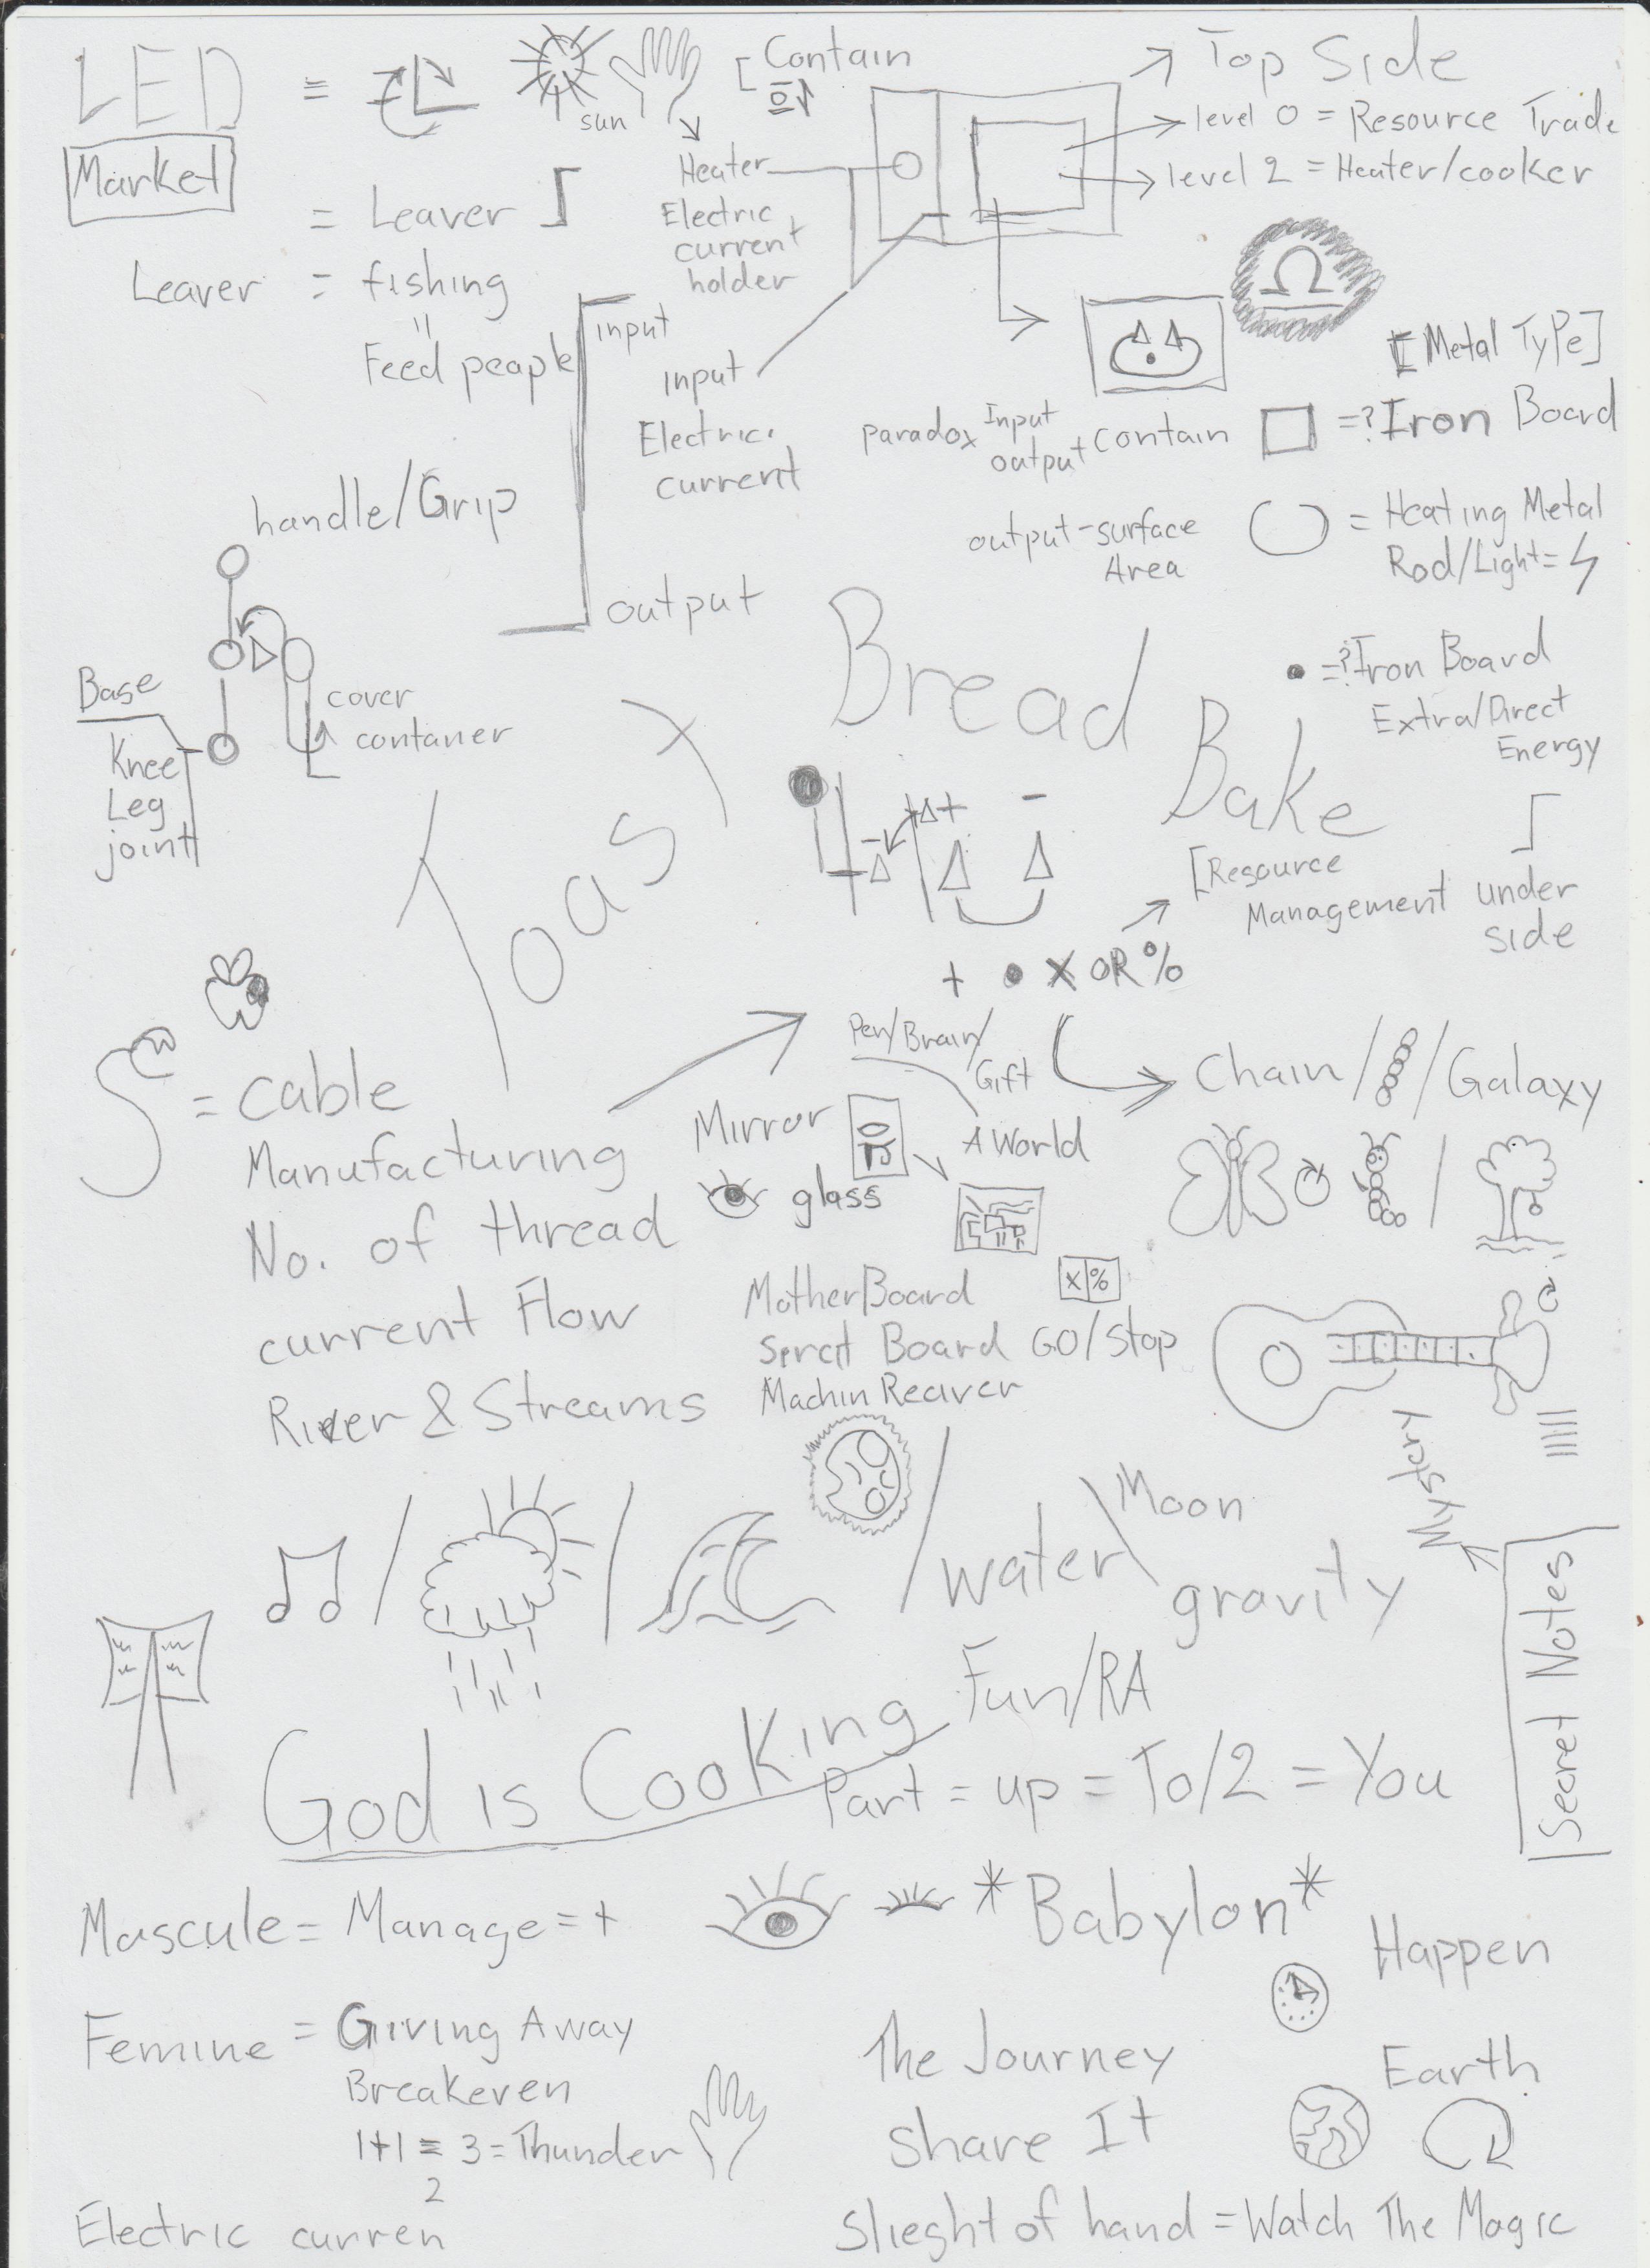 LED ≡
sun
[Contain
Top Side
level 0 = Resource Trade
level 2 = Heater/cooker
Market
= Leaver
Heater
Electric
current
holder
Leaver = fishing
"
Feed peaple
input
input
Electric
current
[Metal TyPe]
paradox Input
output contain
=? Iron Board
output-surface
Area
= Heating Metal
Rod/Light =
handle/Grip
output
Base
Knee
Leg
joint
cover
contaner
Toast
Bread
Bake
=? Iron Board
Extra/Direct
Energy
- + -
[Resource
Management
under
side
+ • X OR %
= cable
Manufacturing
No. of thread
current Flow
River & Streams
Pen/Brain/
Gift
Mirror
glass
A World
Chain / / Galaxy
/
MotherBoard
Sercit Board
Machin Reaiver
X %
GO/Stop
Mystery
Secret Notes
/ / / water \ Moon
gravity
God is Cooking
Fun/RA
Part = up = To/2 = You
Muscule = Manage = +
*Babylon*
Happen
Femine = Giving Away
Breakeven
1+1 ≡ 3 = Thunder
2
Electric curren
The Journey
Share It
Earth
Slieght of hand = Watch The Magic